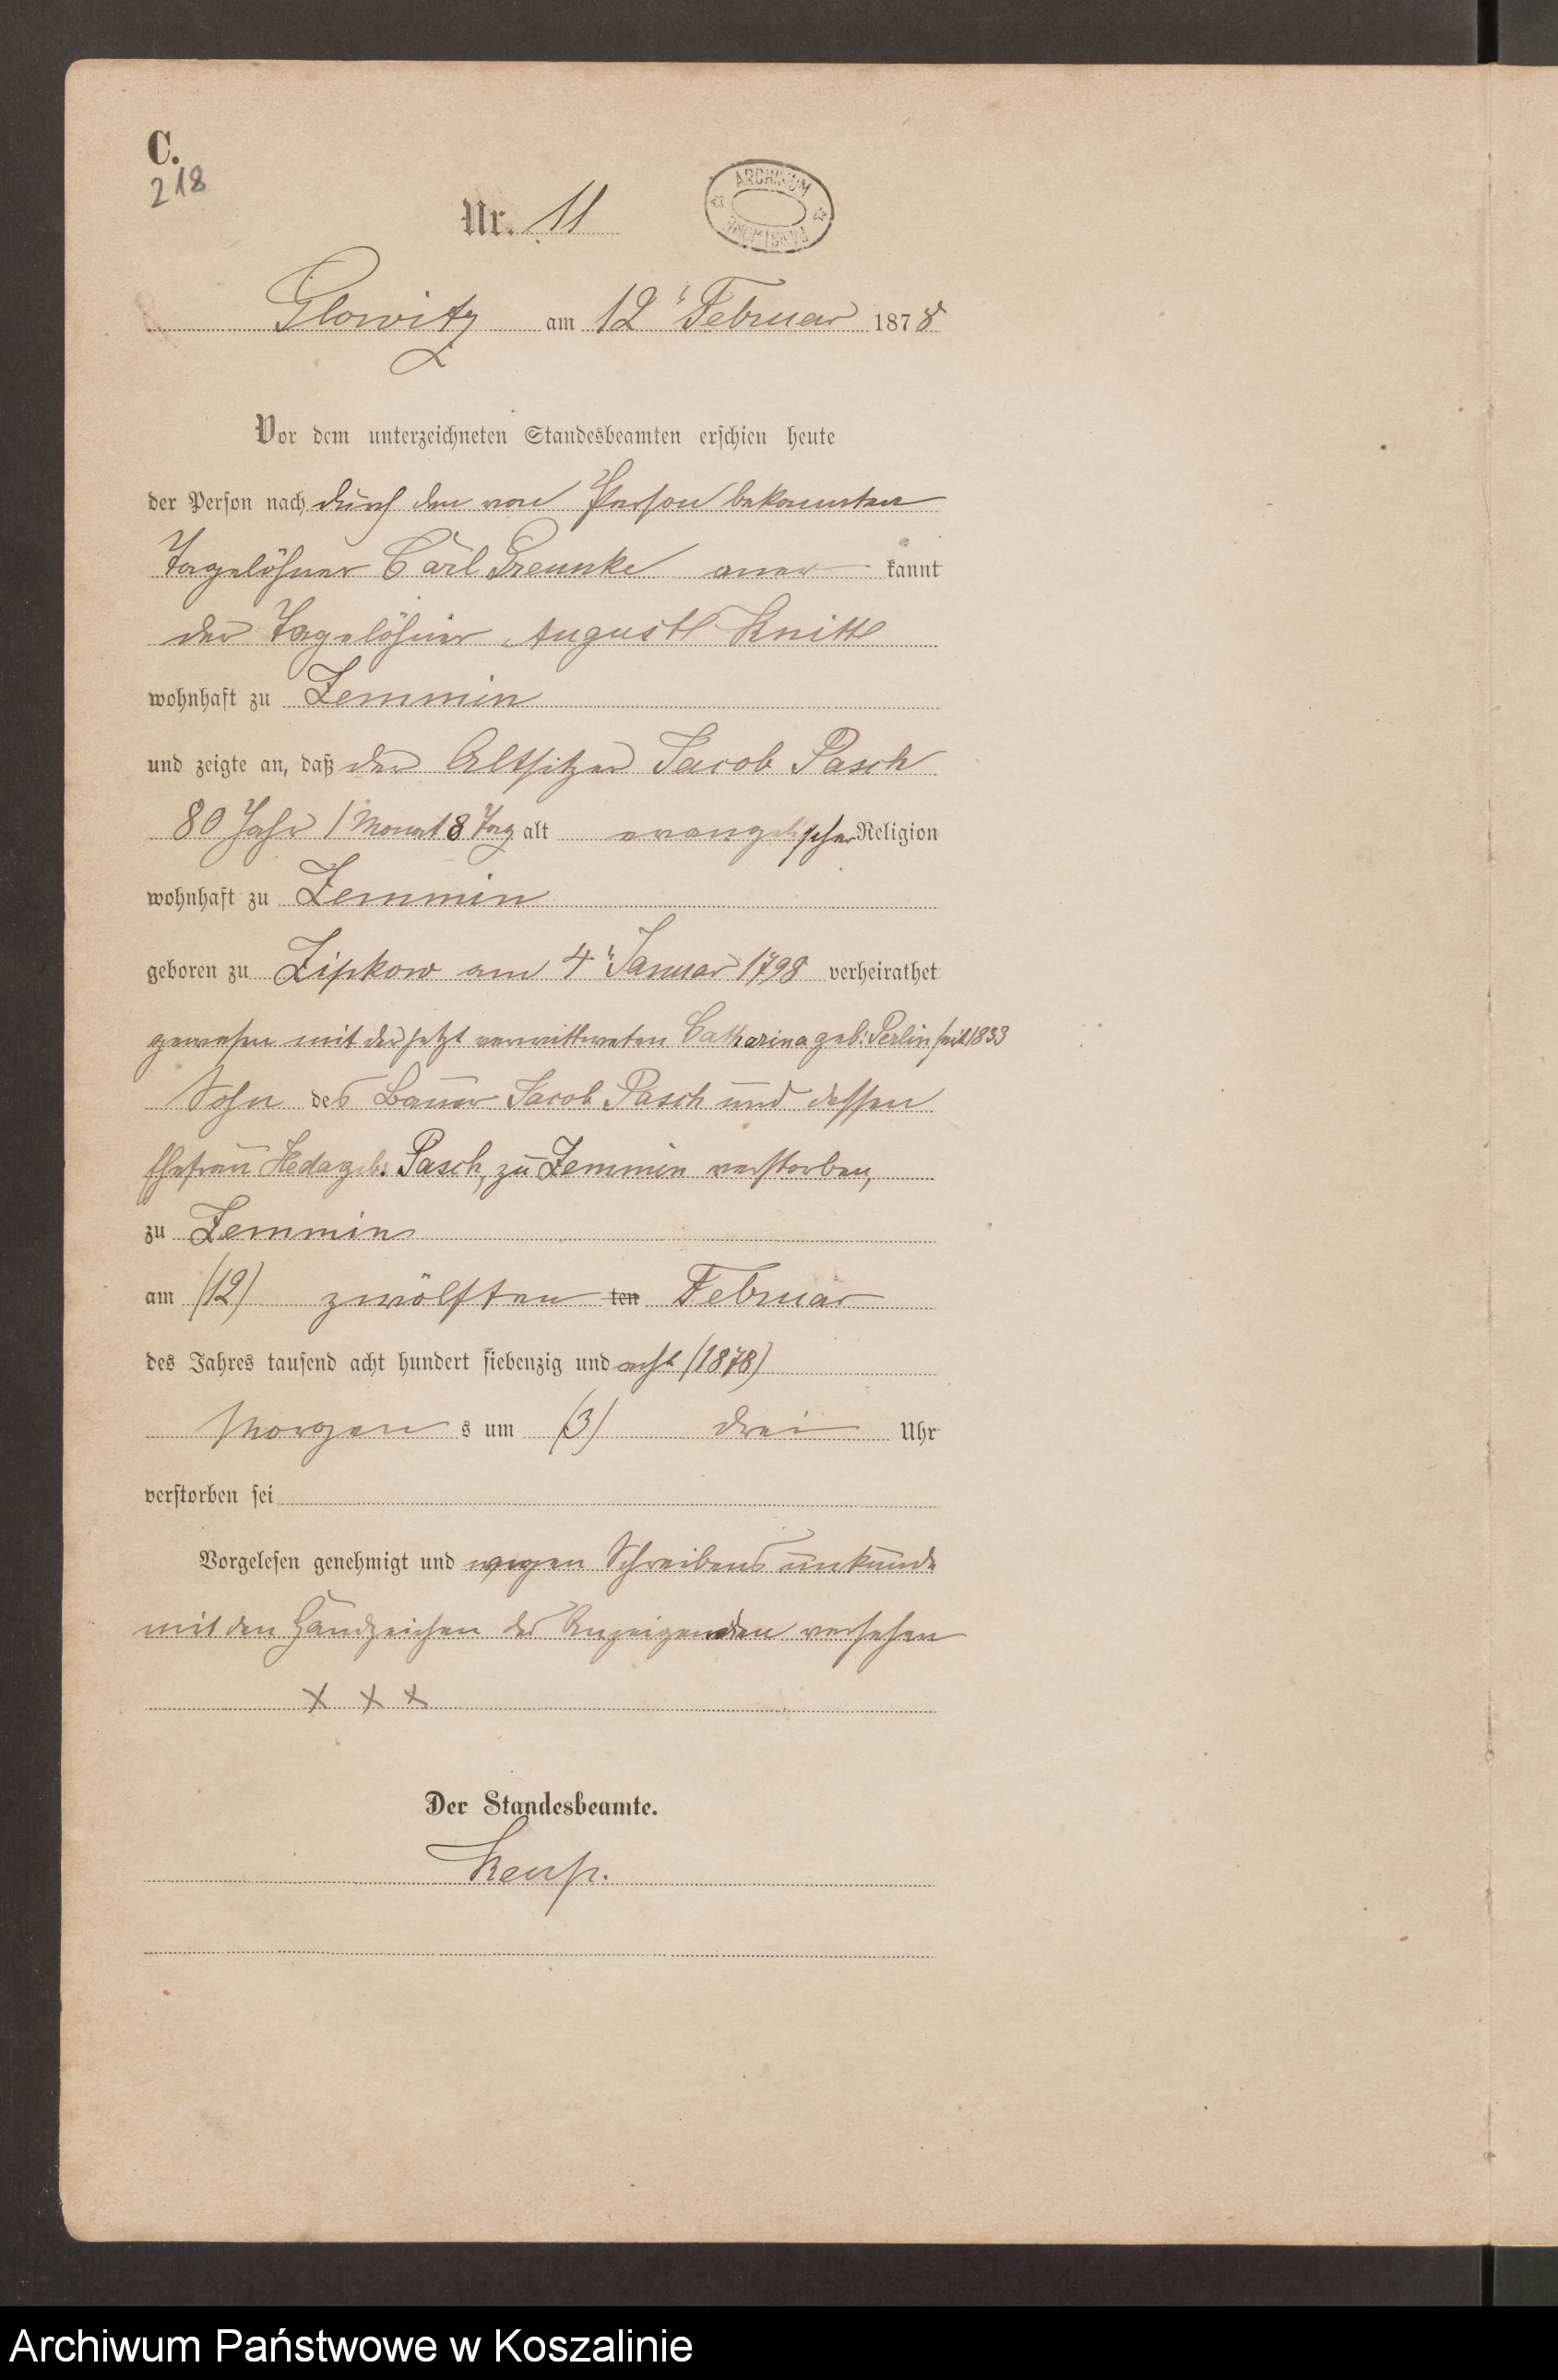 C.
218
Nr. 11
ARCHIWUM
Glowitz am 12t Februar 1878
Vor dem unterzeichneten Standesbeamten erschien heute
der Person nach durch den von Person bekannten
Tagelöhner Carl Greunke aner kannt
der Tagelöhner August Knitt
wohnhaft zu Zemmin
und zeigte an, daß der Altsitzer Jacob Pasch
80 Jahr 1 Monat 8 Tag alt evangelischer Religion
wohnhaft zu Zemmin
geboren zu Zipkow am 4t Januar 1798 verheirathet
gewesen mit der jetzt verwittweten Catharina geb: Perlin seit 1833
Sohn des Bauer Jacob Pasch und dessen
Ehefrau Heda geb. Pasch, zu Zemmin verstorben,
zu Zemmin
am (12) zwölften ten Februar
des Jahres tausend acht hundert siebenzig und acht (1878)
Morgen s um (3) drei Uhr
verstorben sei
Vorgelesen genehmigt und wegen Schreibens unkunde
mit den Handzeichen des Anzeigenden versehen
X X X
Der Standesbeamte.
Archiwum Państwowe w Koszalinie